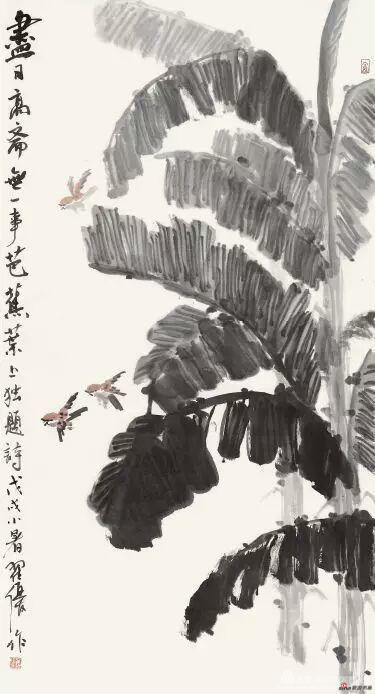 盡日高齋無一事芭蕉葉上独題詩戊戌小暑翟優作
sina